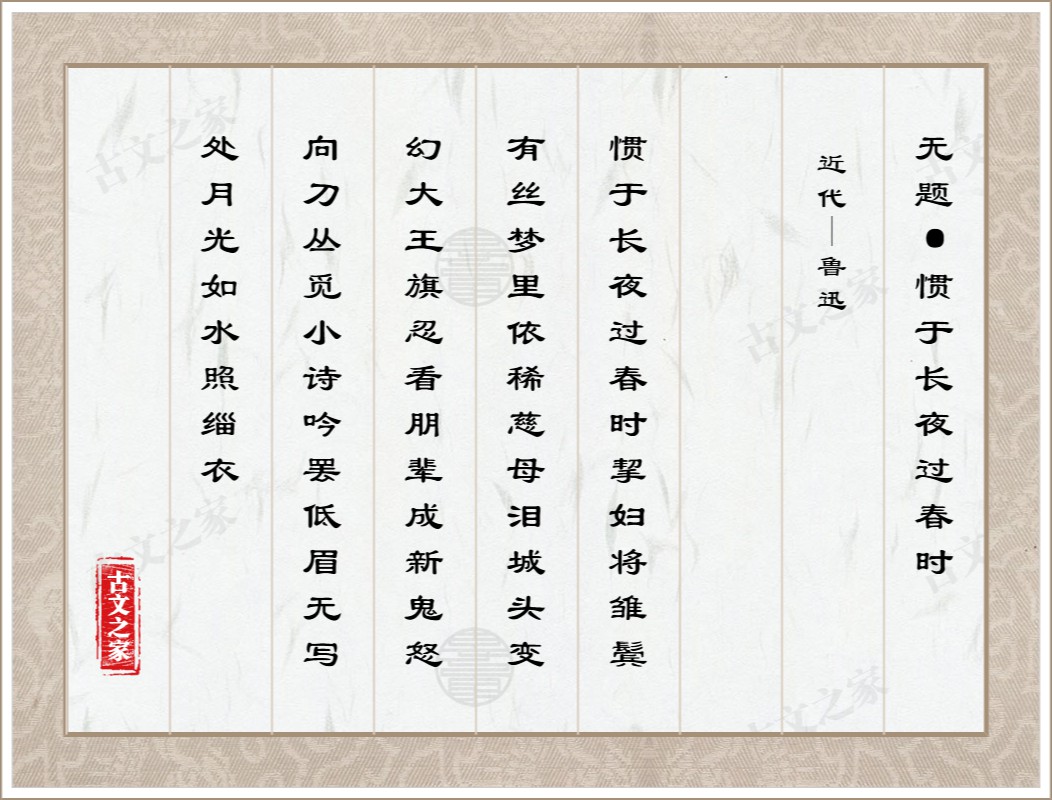 无题●惯于长夜过春时
近代—鲁迅
惯于长夜过春时挈妇将雏鬓
有丝梦里依稀慈母泪城头变
幻大王旗忍看朋辈成新鬼怒
向刀丛觅小诗吟罢低眉无写
处月光如水照缁衣
古文之家
古文之家
古文之家
古文之家
古文之家